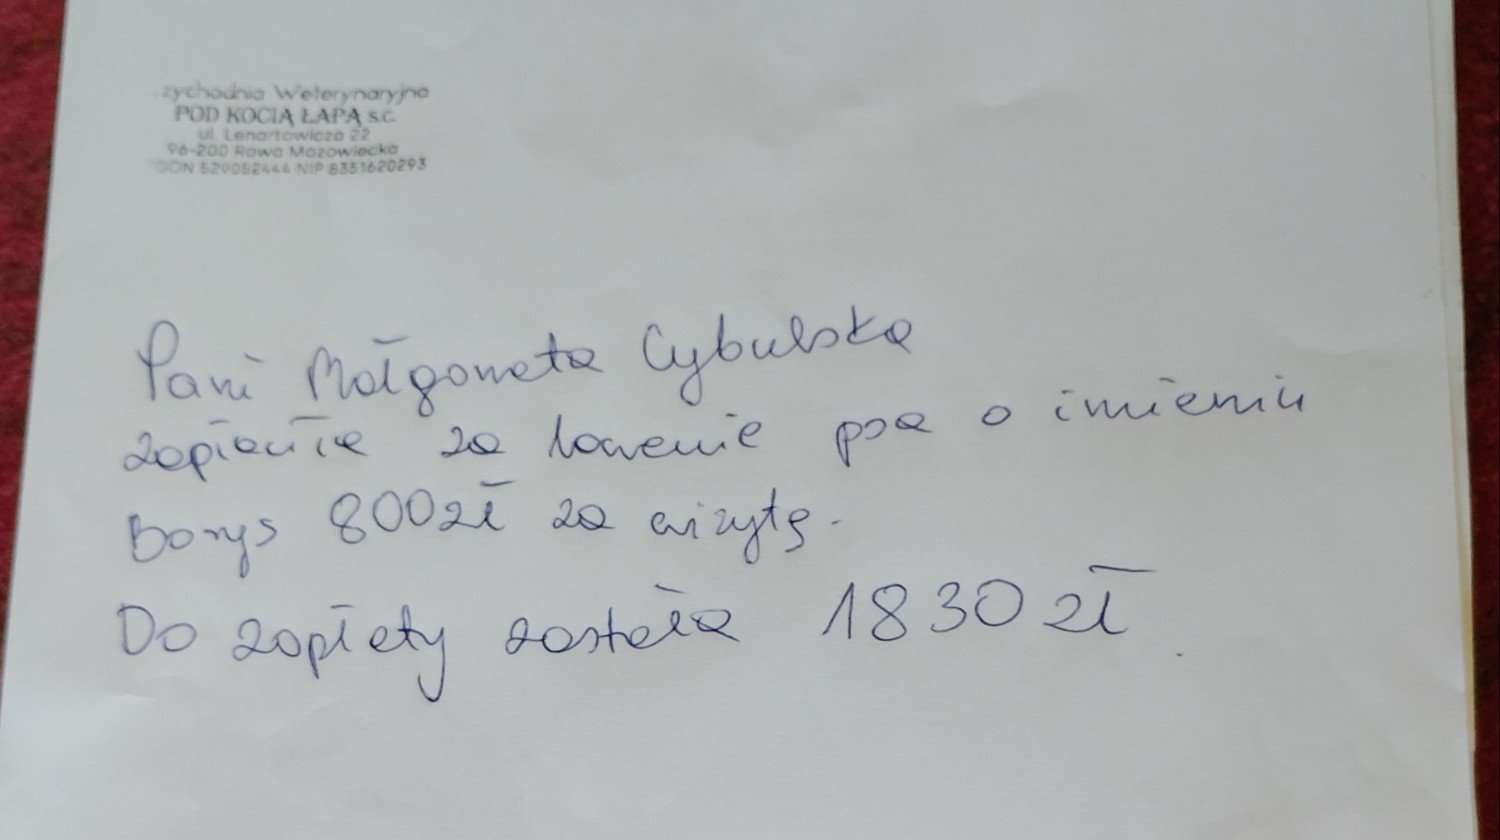 zychodnia Weterynaryjna
POD KOCIĄ ŁAPĄ s.c.
ul. Lenartowicza 22
96-200 Rawa Mazowiecka
GON 529052444 NIP 8351620293
Pani Małgorzata Cybulska
zapłaciła za leczenie psa o imieniu
Borys 800zł za wizytę.
Do zapłaty została 1830 zł.